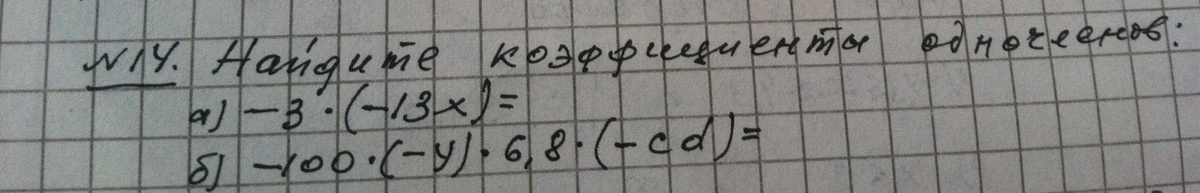 №14. Найдите коэффициенты одночленов:
а) -3·(-13x)=
б) -100·(-y)·6,8·(-cd)=